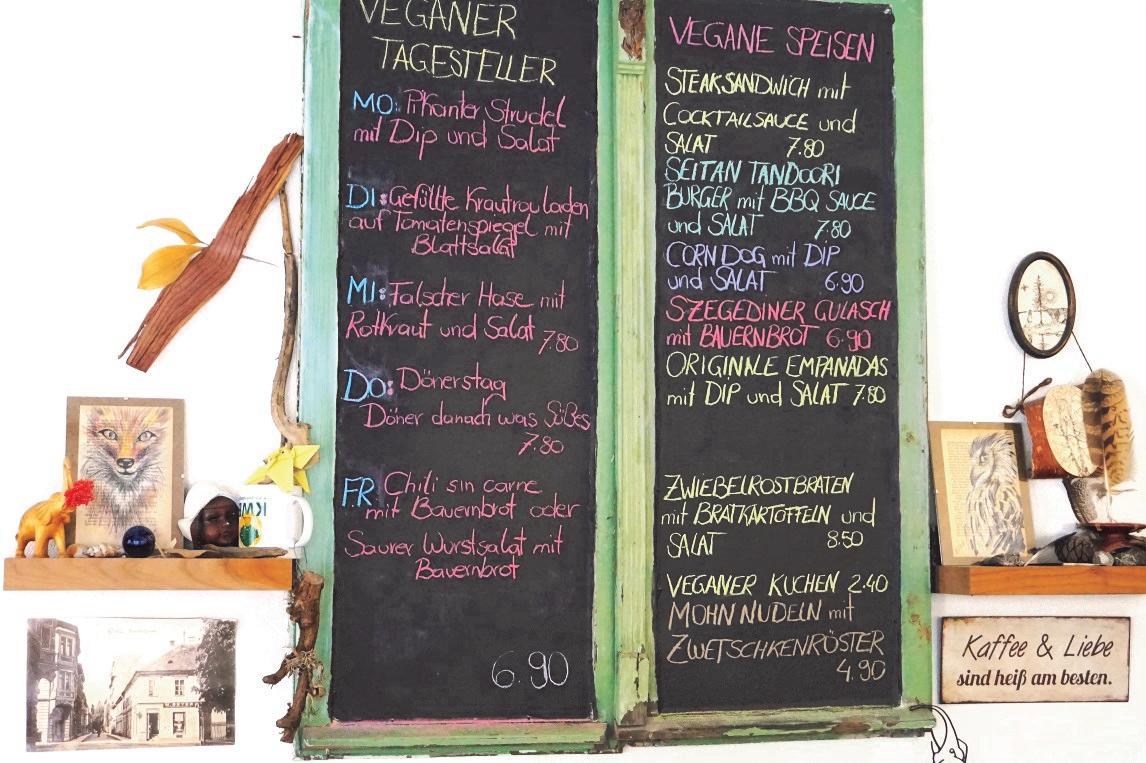 VEGANER
TAGESTELLER
MO: Pikanter Strudel
mit Dip und Salat
DI: Gefüllte Krautrouladen
auf Tomatenspiegel mit
Blattsalat
MI: Falscher Hase mit
Rotkraut und Salat 7.80
DO: Dönerstag
Döner danach was Süßes
7.80
FR: Chili sin carne
mit Bauernbrot oder
Saurer Wurstsalat mit
Bauernbrot
6.90
VEGANE SPEISEN
STEAKSANDWICH mit
COCKTAILSAUCE und
SALAT 7.80
SEITAN TANDOORI
BURGER mit BBQ SAUCE
und SALAT 7.80
CORN DOG mit DIP
und SALAT 6.90
SZEGEDINER GULASCH
mit BAUERNBROT 6.90
ORIGINALE EMPANADAS
mit DIP und SALAT 7.80
ZWIEBELROSTBRATEN
mit BRATKARTOFFELN und
SALAT 8.50
VEGANER KUCHEN 2.40
MOHNNUDELN mit
ZWETSCHKENRÖSTER
4.90
Kaffee & Liebe
sind heiß am besten.